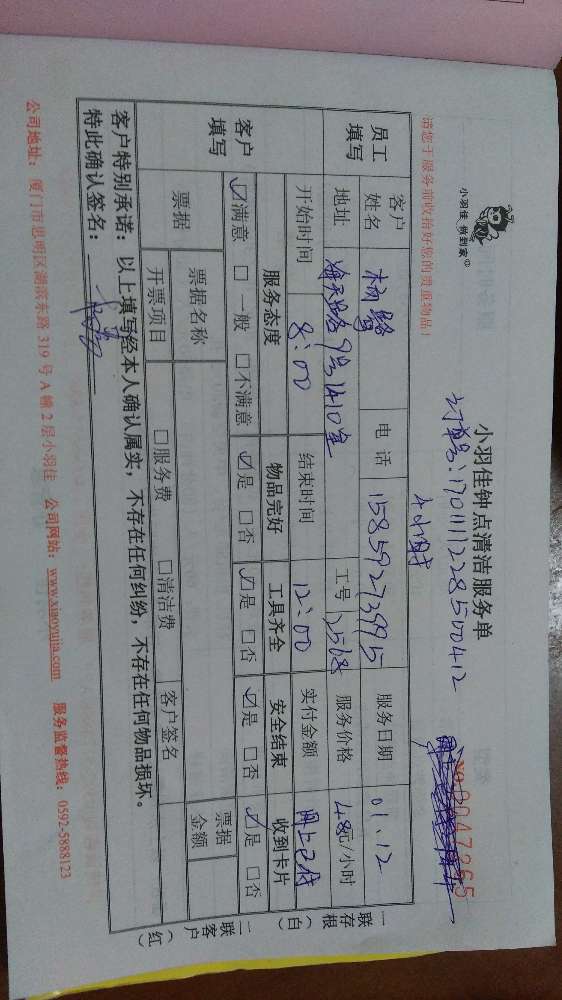 小羽佳 做到家
小羽佳钟点清洁服务单
订单号:170111228500412
请您于服务前收拾好您的贵重物品!
4小时
NO 0047265
员工填写
客户姓名 杨璐 电话 15859273995 服务日期 01.12
地址 海天路9号1410室 工号 2568 服务价格 48元/小时
开始时间 8:00 结束时间 12:00 实付金额 网上已付
客户填写
服务态度 物品完好 工具齐全 安全结束 收到卡片
☑满意 □一般 □不满意 ☑是 □否 ☑是 □否 ☑是 □否 ☑是 □否
票据 票据名称 票据金额
开票项目 □服务费 □清洁费 客户签名
客户特别承诺:以上填写经本人确认属实,不存在任何纠纷,不存在任何物品损坏。
特此确认签名:
公司地址:厦门市思明区湖滨东路319号A幢2层小羽佳 公司网站:www.xiaoyujia.com 服务监督热线:0592-5888123
一联存根(白)
二联客户(红)